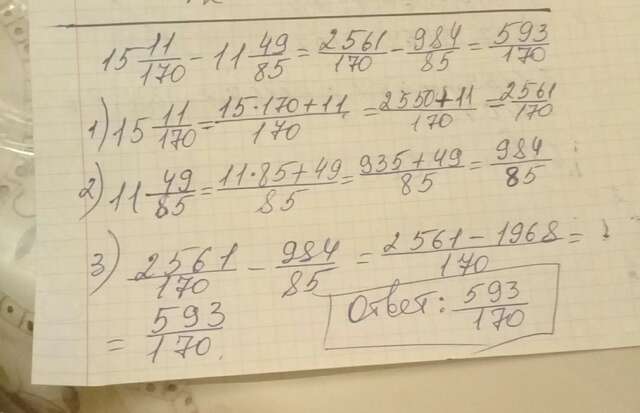 15 11/170 - 11 49/85 = 2561/170 - 984/85 = 593/170
1) 15 11/170 = 15·170+11/170 = 2550+11/170 = 2561/170
2) 11 49/85 = 11·85+49/85 = 935+49/85 = 984/85
3) 2561/170 - 984/85 = 2561-1968/170 =
= 593/170.
Ответ: 593/170